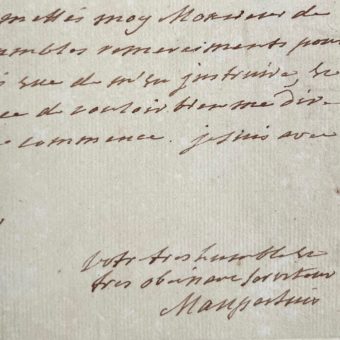 mettés moy Monsieur de
umbles remerciments pour
de m'en instruire, &
ce de vouloir bien me dire
commence. je suis avec
votre tres humble &
tres obeissant serviteur
Maupertuis